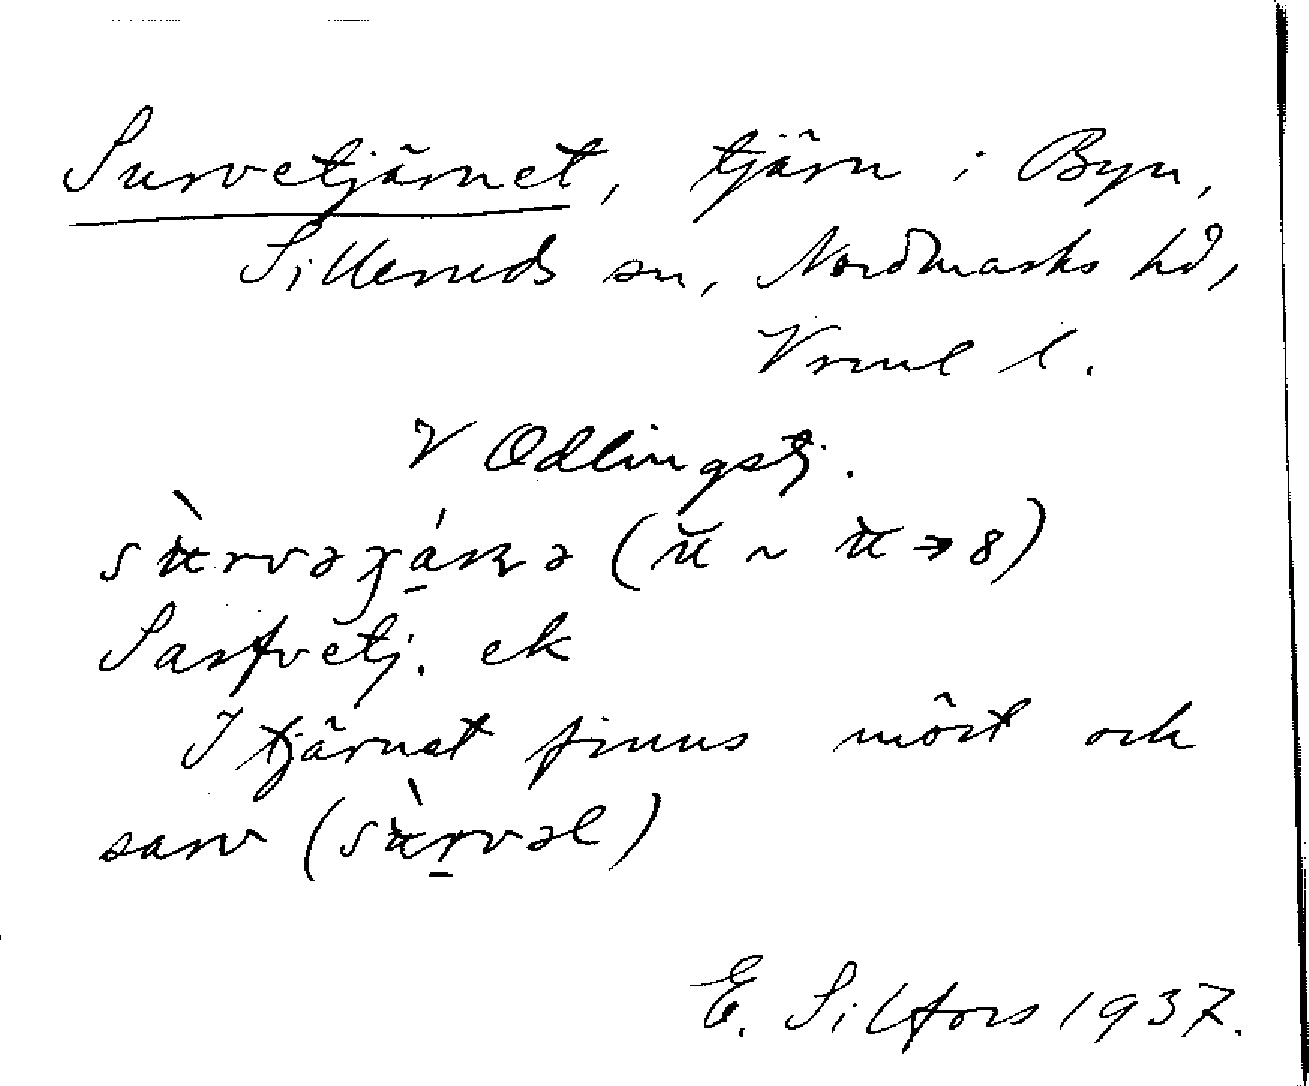 Survetjärnet, tjärn i Byn,
Silleruds sn, Nordmarks hd,
Vrml l.
V Odlingstj.
Sarfvetj. ek
I tjärnet finns mört och
sarv
E. Silfors 1937.